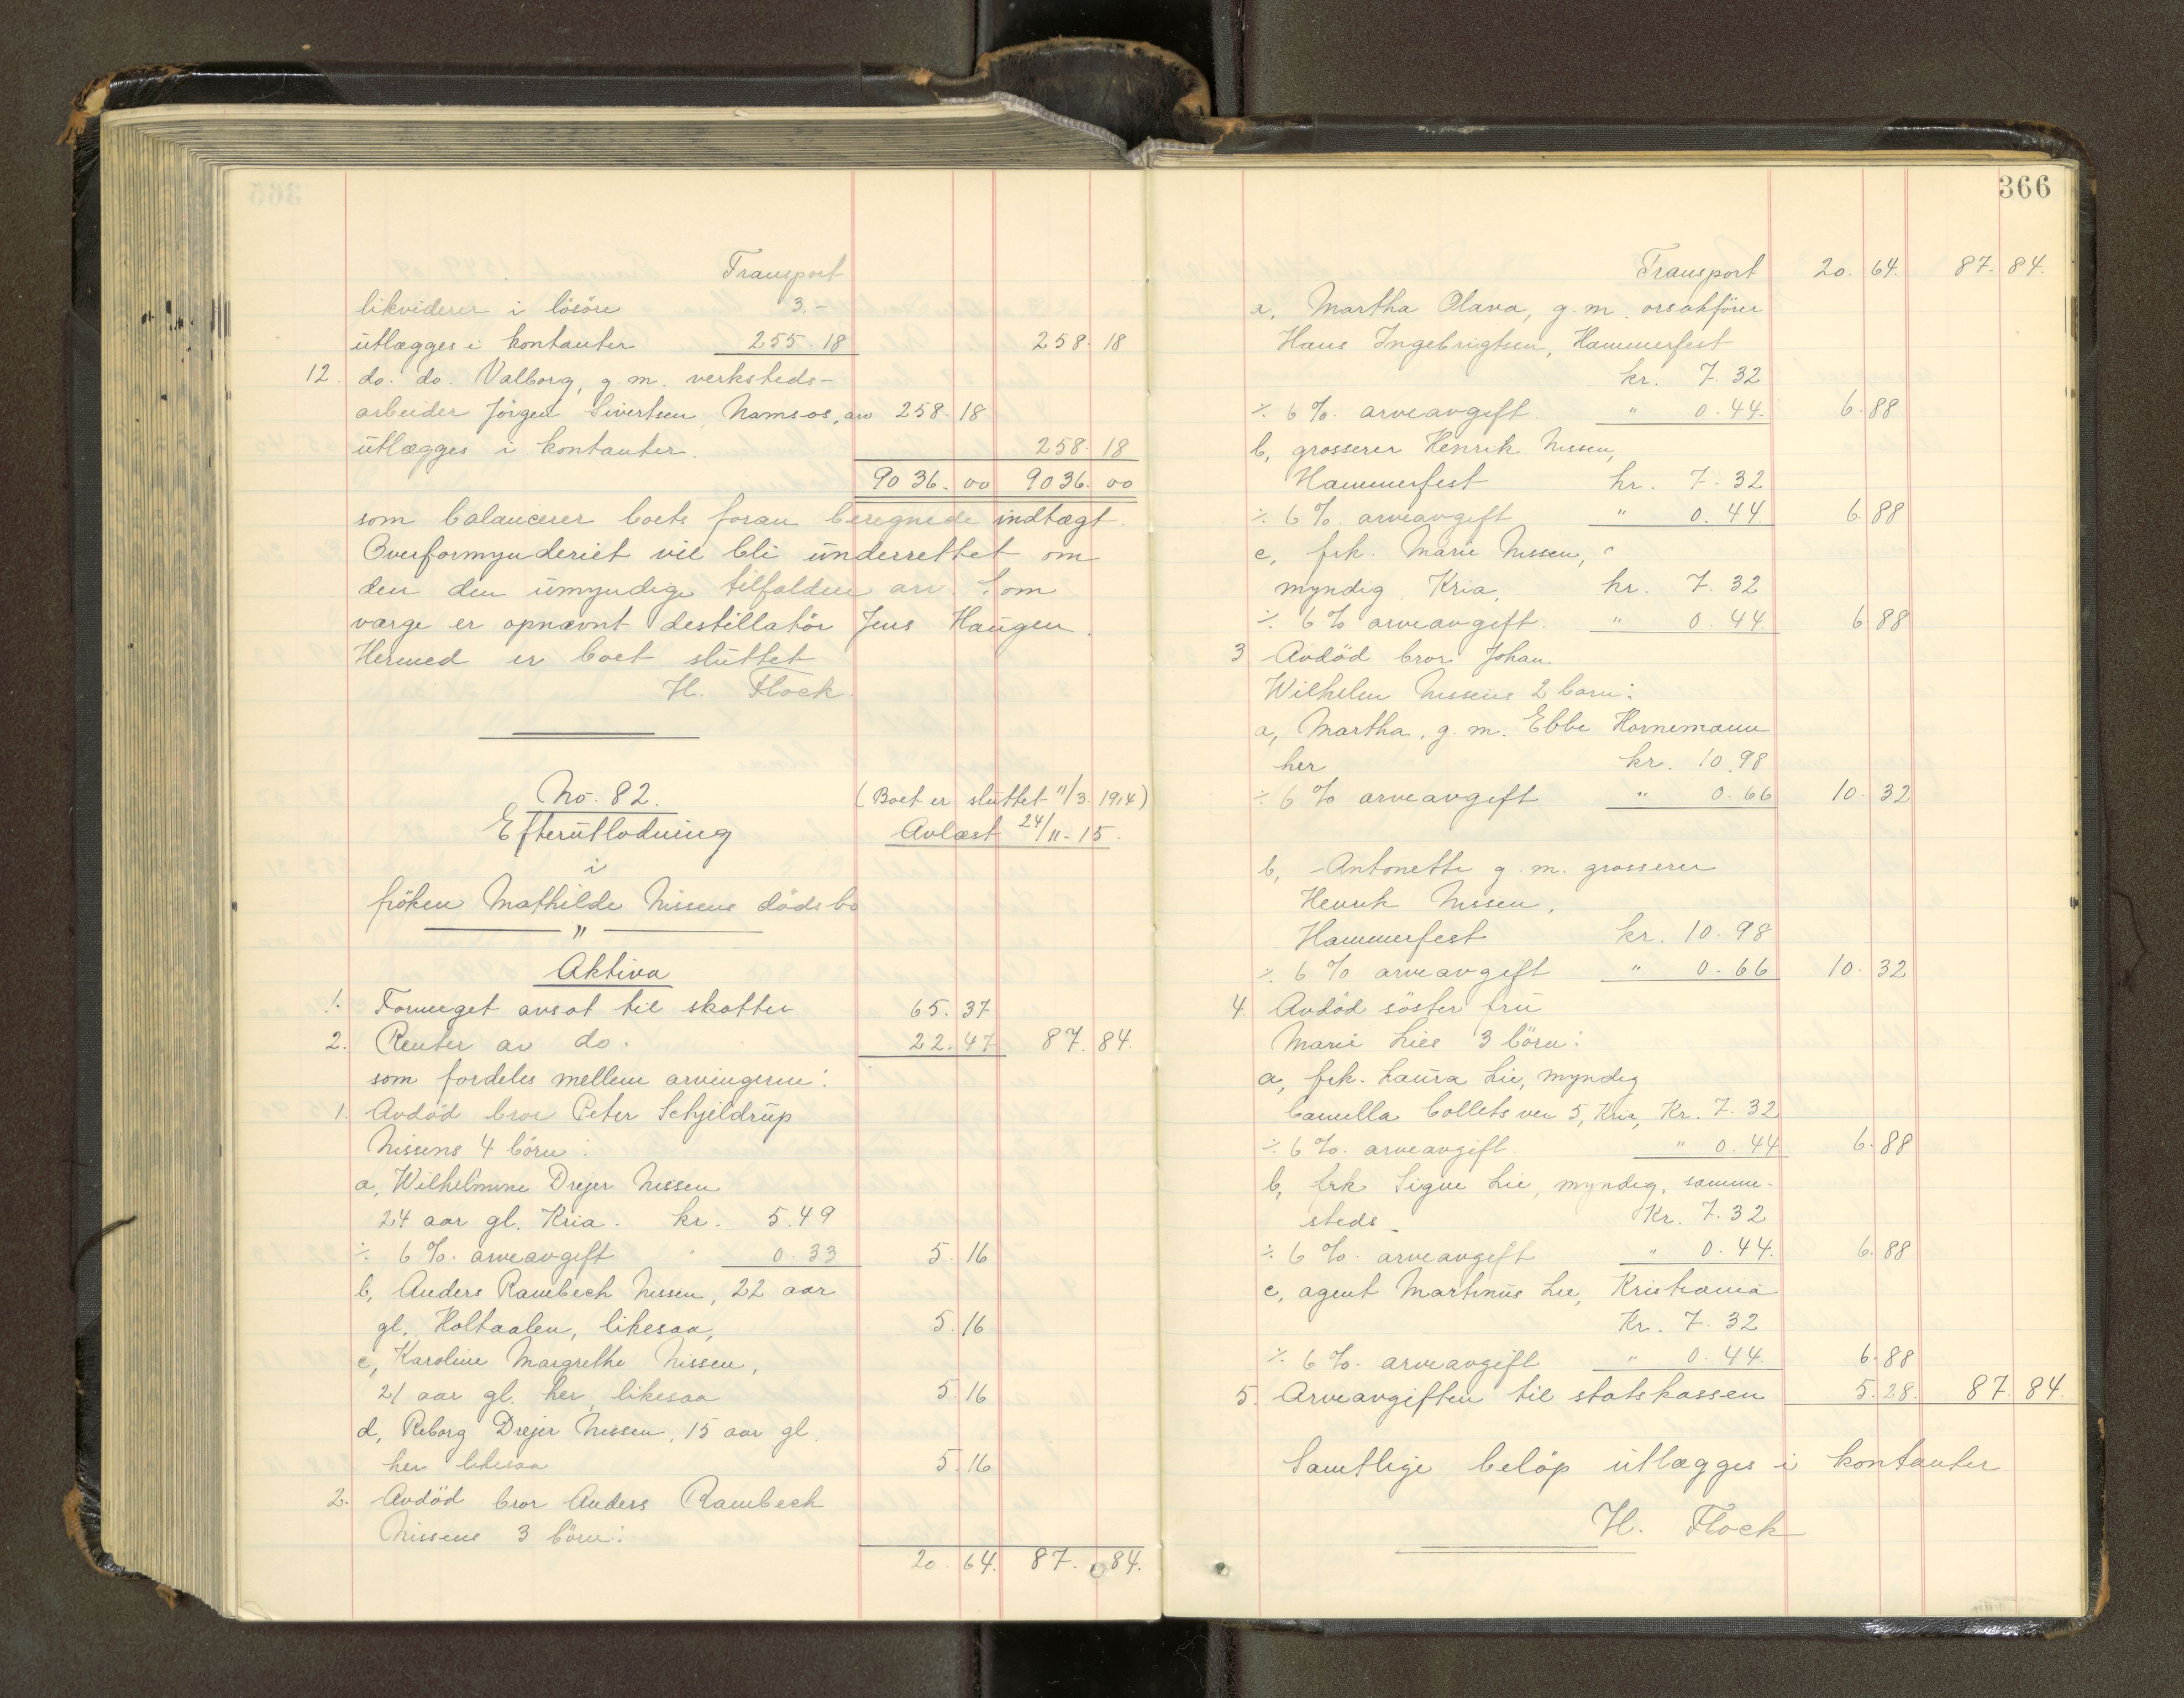 Transport
likviderer i lösöre 3.-
utlægges i kontanter 255.18 258.18
12. do. do. Valborg, g. m. verksteds-
arbeider Jörgen Sivertsen, Namsos, arv 258.18
utlægges i kontanter. 258.18
9036.00 9036.00
som balancerer boets foran beregnede indtægt.
Overformynderiet vil bli underrettet om
den den umyndige tilfaldne arv. Som
værge er opnævnt destillatör Jens Haugen.
Hermed er boet sluttet
H. Flock.
No. 82. (Boet er sluttet 11/3 1914)
Efterutlodning Avlæst 24/11-15.
i
fröken Mathilde Nissens dödsbo
"
Aktiva
1. Formeget avsat til skatter 65.37
2. Renter av do. 22.47 87.84.
som fordeles mellem arvingerne:
1. Avdöd bror Peter Schjeldrup
Nissens 4 börn:
a, Wilhelmine Drejer Nissen
24 aar gl. Kria. kr. 5.49
÷ 6 %. arveavgift " 0.33 5.16
b, Anders Rambech Nissen, 22 aar
gl. Holtaalen, likesaa, 5.16
c, Karoline Margrethe Nissen,
21 aar gl. her, likesaa 5.16
d, Reborg Drejer Nissen, 15 aar gl.
her likesaa 5.16
2. Avdöd bror Anders Rambech
Nissens 3 börn:
20.64. 87.84.
366
Transport 20.64. 87.84.
a, Martha Olava, g. m.
Hans Ingebrigtsen, Hammerfest
kr. 7.32
÷ 6 %. arveavgift. " 0.44. 6.88
b, grosserer Henrik Nissen,
Hammerfest kr. 7.32
÷ 6 %. arveavgift " 0.44 6.88
c, frk. Marie Nissen,
myndig, Kria, kr. 7.32
÷ 6 % arveavgift. " 0.44. 6.88
3 Avdöd bror Johan
Wilhelm Nissens 2 barn:
a, Martha, g. m. Ebbe Hornemann
her kr. 10.98
÷ 6 % arveavgift " 0.66 10.32
b, Antonette g. m. grosserer
Henrik Nissen,
Hammerfest kr. 10.98
÷ 6 % arveavgift " 0.66 10.32
4. Avdöd söster fru
Marie Lies 3 börn:
a, frk. Laura Lie, myndig
Camilla Collets vei 5, Kria, Kr. 7.32
÷ 6 %. arveavgift. " 0.44 6.88
b, frk Signe Lie, myndig, samme-
steds - Kr. 7.32
÷ 6 %. arveavgift " 0.44. 6.88
c, agent Martinus Lie, Kristiania
Kr. 7.32
÷ 6 %. arveavgift " 0.44. 6.88
5. Arveavgiften til statskassen 5.28. 87.84.
Samtlige belöp utlægges i kontanter
H. Flock